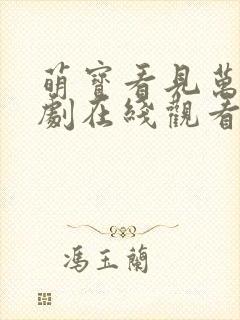 萌寶看見萬
劇在綫觀看
馮玉蘭